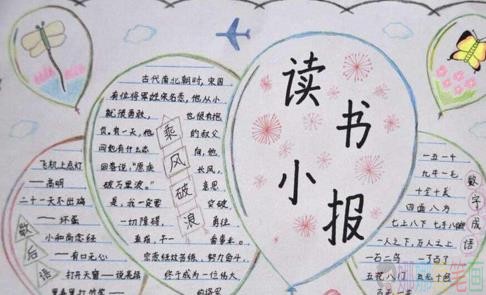 读书
小报
古代南北朝时,宋国
有位将军姓宗名悫,他从小
就很勇敢,也很有抱
负。有一天,他的叔父
问他有什么志向,他
回答说:"愿乘长风,
破万里浪。"意思
是,我一定要突破
一切障碍,勇往
直前,干一番事业。
宗悫经过苦练,努力奋斗,
终于成为一位伟大
的将军
乘风破浪
飞机上点灯
——高明
二十一天不出鸡
——坏蛋
小和尚念经
——有口无心
打开天窗——说亮话
歇后语
一五一十
九牛一毛
十全十美
四面八方
七上八下 七手八脚
一人之下,万人之上
一石二鸟 一了百了
五花八门 五光十色
数字成语